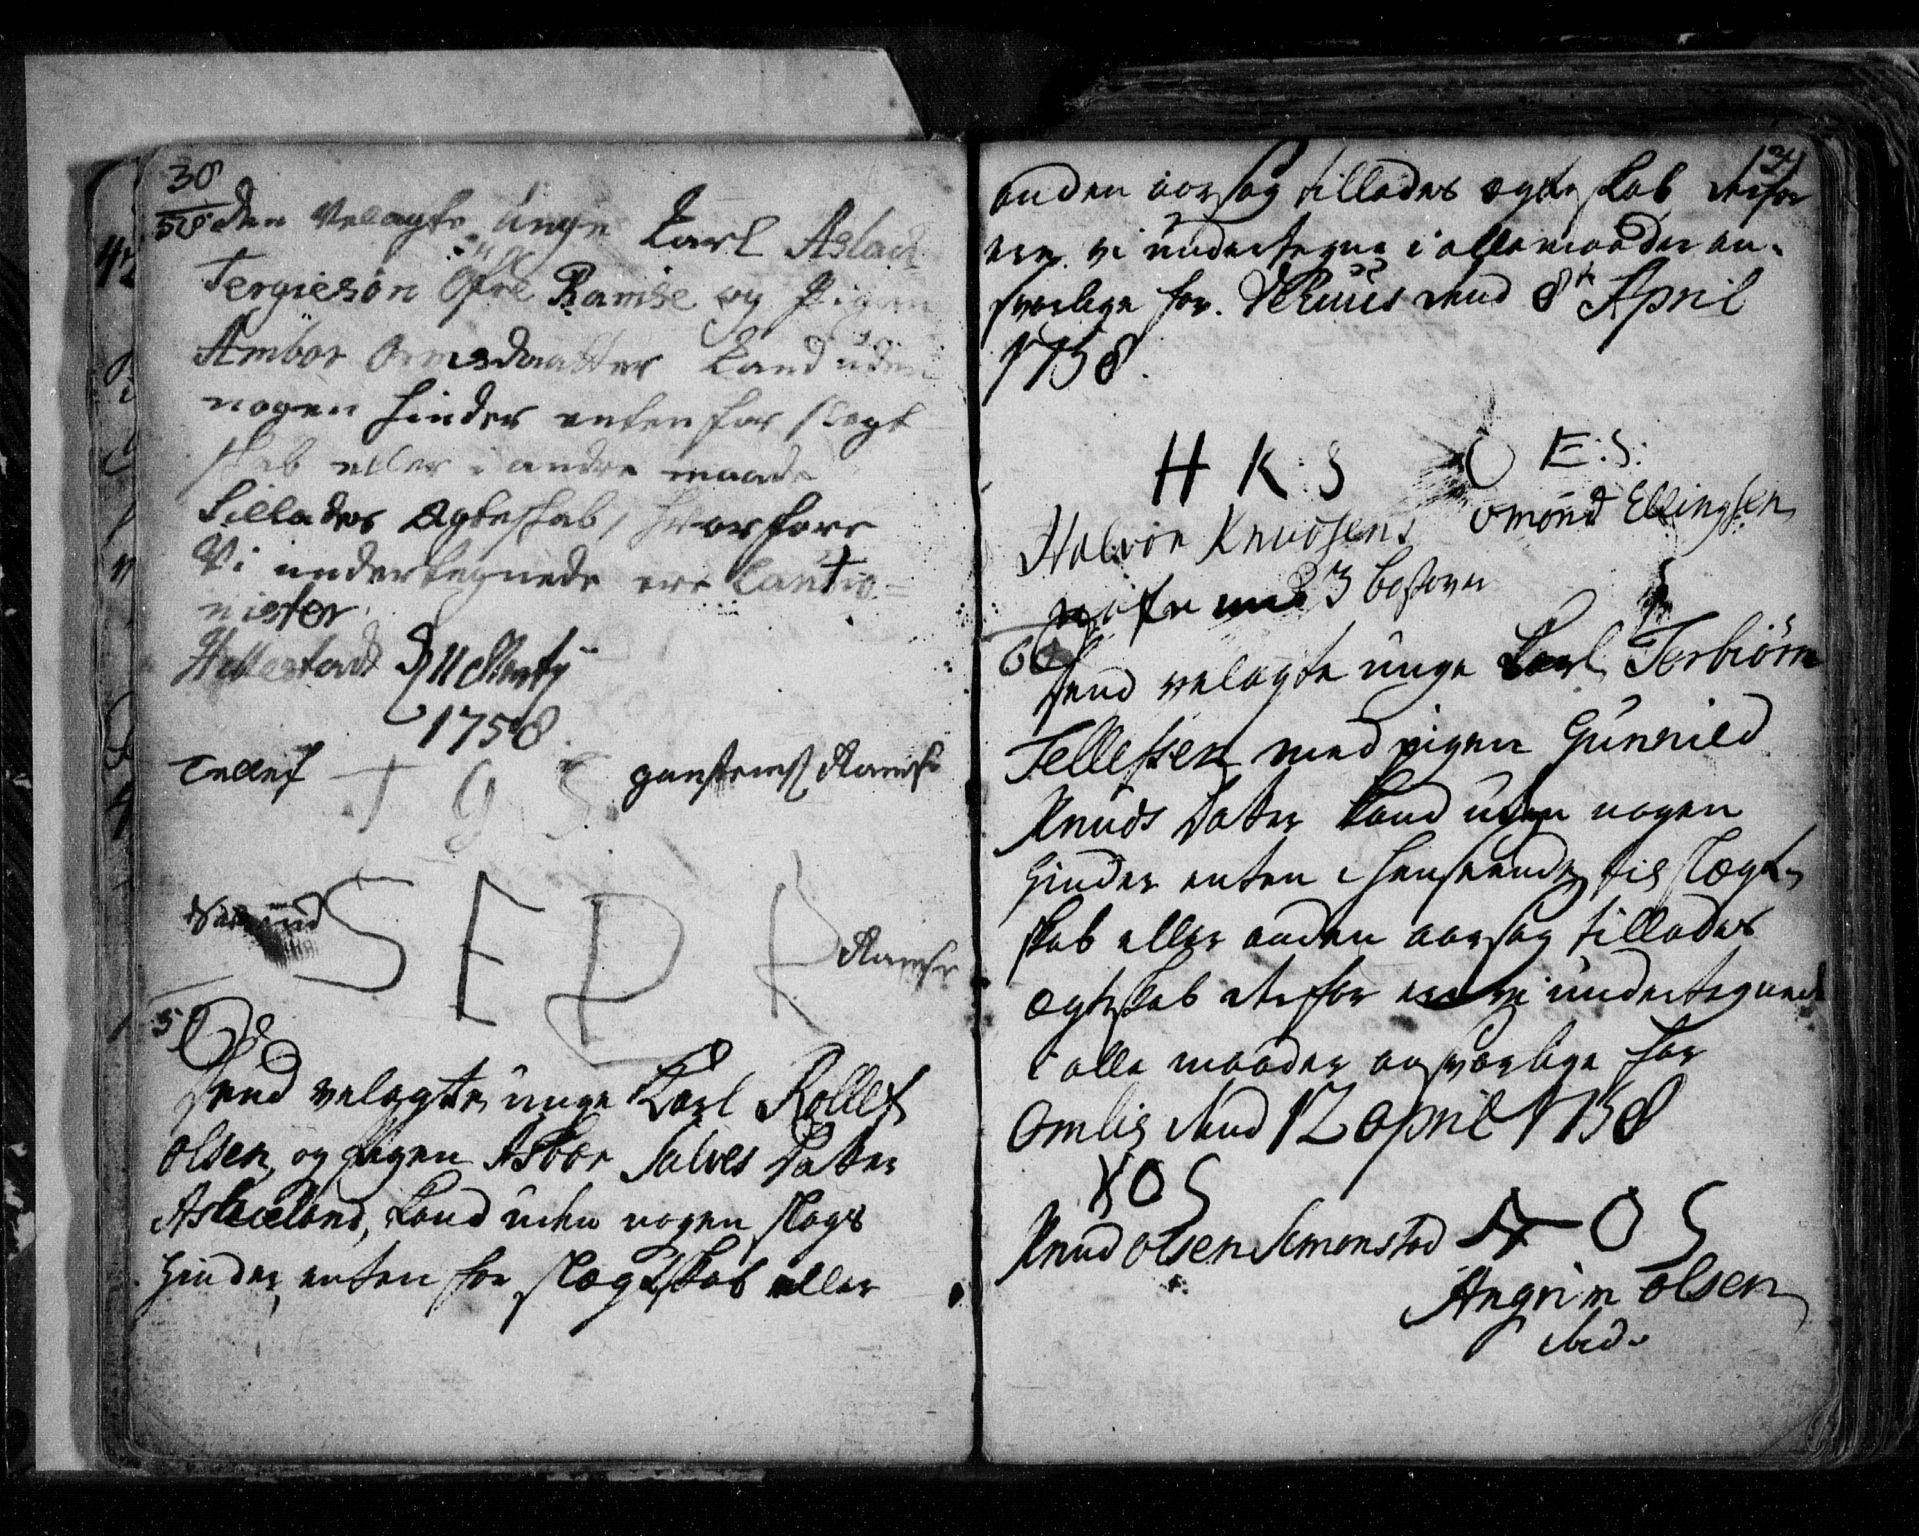 30
58 den Velagte unge Karl Aslach
Tergiesøn Øfre Ramse og Pigen
Ambør Ormsdaatter kand uden
nogen hinder enten for slegt
skab eller i andre maade
tillades Ægteskab, hvorfore
Vi undertegnede ere Cautio=
nister.
Hellestad d 11 Marty
1758
Tellef T G S Ramse
S E D R Ramse
59
Dend velagte unge Karl Rollef
Olsen og Pigen Asbør Salves Datter
Askeland, kand uden nogen slags
hinder enten for slægtskab eller
31
anden aarsag tillades ægteskab derfor
ere vi undertegne i alle maader an-
svarlige for. dend 8de April
1758.
H K S O E: S:
Halvor Knudsens Omønd Ellingsen
60
Dend velagte unge Karl Terbiørn
Tellefsen med pigen Gunnild
Knuds Datter kand uden nogen
hinder enten i henseende til slægt-
skab eller anden aarsag tillades
ægteskab derfor ere vi undertegnede
i alle maader ansvarlige for
Omlie dend 12 April 1758
K O S
Knud Olsen Simonstad A O S
Angrim Olsen
ibid.